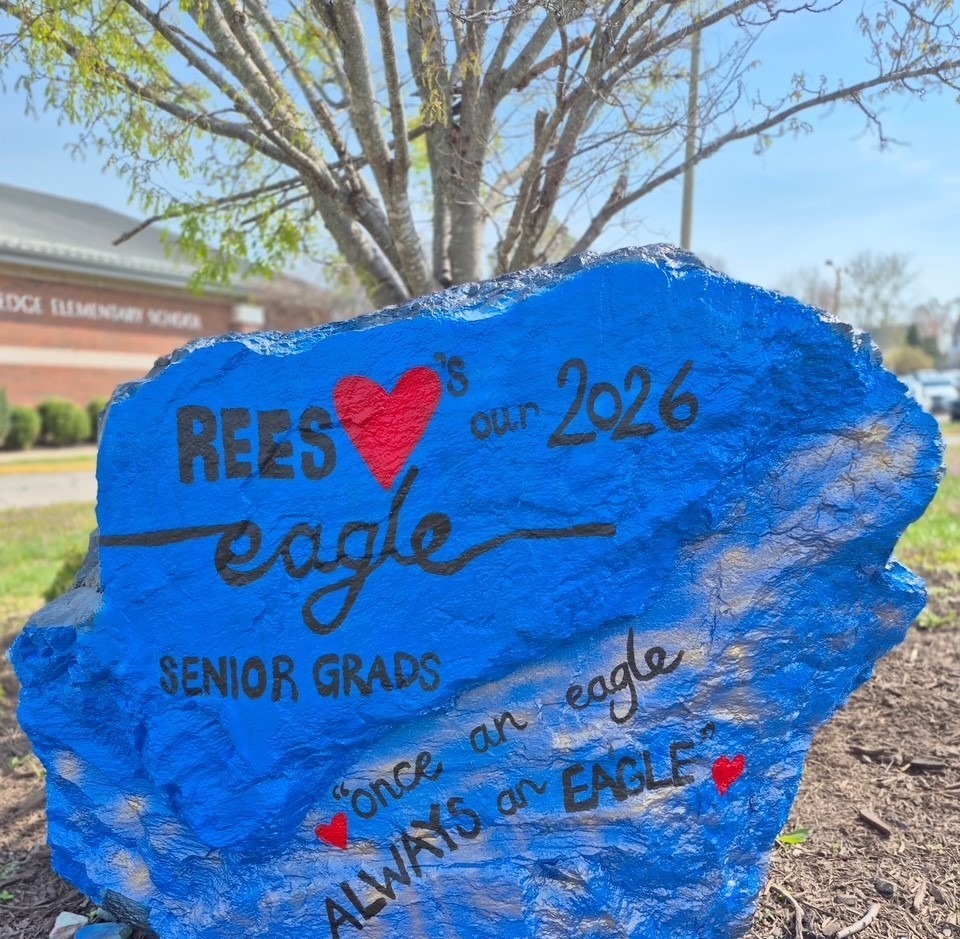 EDGE ELEMENTARY SCHOOL
REES ❤'s our 2026
eagle
SENIOR GRADS
"once an eagle
ALWAYS an EAGLE"